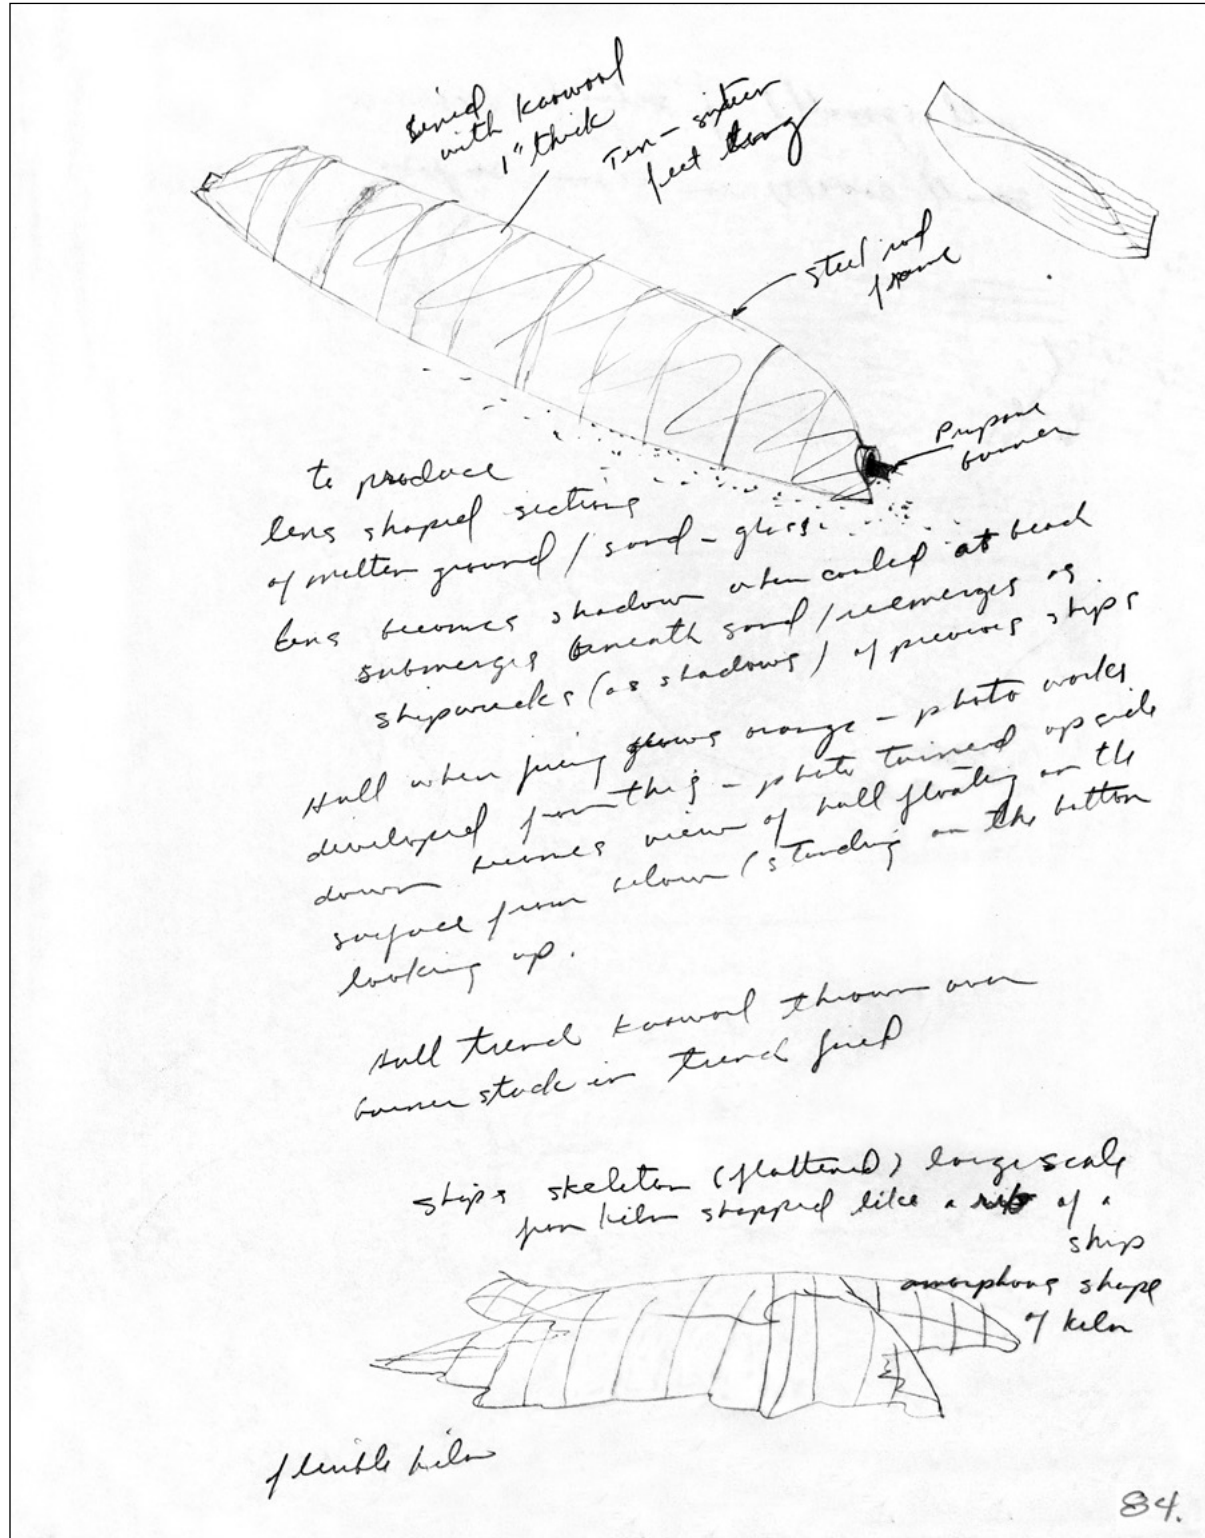 lined
with kaowool
1" thick
Ten - sixteen
feet long
steel rod
frame
Propane
burner
to produce
lens shaped sections
of molten ground / sand - glass.
lens becomes shadow when cooled at beach
submerges beneath sand / reemerges as
shipwrecks (as shadows) of previous ships
Hull when firing glows orange - photo works
developed from this - photo turned upside
down becomes view of hull floating on the
surface from below (standing on the bottom
looking up.
Hull trench kaowool thrown over
burner stuck in trench fired
ships skeleton (flattened) large scale
from kiln shapped like a rib of a
ship
amorphous shape
of kiln
flexible kiln
84.